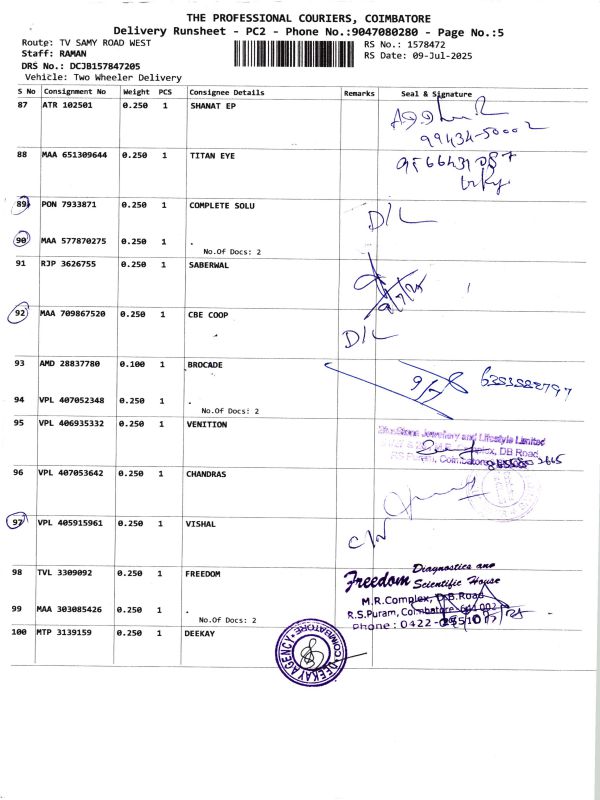 THE PROFESSIONAL COURIERS, COIMBATORE
Delivery Runsheet - PC2 - Phone No.:9047080280 - Page No.:5
Route: TV SAMY ROAD WEST
RS No.: 1578472
Staff: RAMAN
RS Date: 09-Jul-2025
DRS No.: DCJB157847205
Vehicle: Two Wheeler Delivery
S No Consignment No Weight PCS Consignee Details Remarks Seal & Signature
87 ATR 102501 0.250 1 SHANAT EP
99434-50002
88 MAA 651309644 0.250 1 TITAN EYE
89 PON 7933871 0.250 1 COMPLETE SOLU D/L
90 MAA 577870275 0.250 1 .
No.Of Docs: 2
91 RJP 3626755 0.250 1 SABERWAL
9/7/25
92 MAA 709867520 0.250 1 CBE COOP D/L
93 AMD 28837780 0.100 1 BROCADE
94 VPL 407052348 0.250 1 .
No.Of Docs: 2
95 VPL 406935332 0.250 1 VENITION
Jewellery and Lifestyle Limited
DB Road,
RS Puram, Coimbatore
96 VPL 407053642 0.250 1 CHANDRAS
97 VPL 405915961 0.250 1 VISHAL
98 TVL 3309092 0.250 1 FREEDOM
Freedom Diagnostics and
Scientific House
M.R.Complex, D.B.Road
R.S.Puram, Coimbatore-641 002
Phone : 0422 -
99 MAA 303085426 0.250 1 .
No.Of Docs: 2
100 MTP 3139159 0.250 1 DEEKAY
DEEKAY AGENCY COIMBATORE